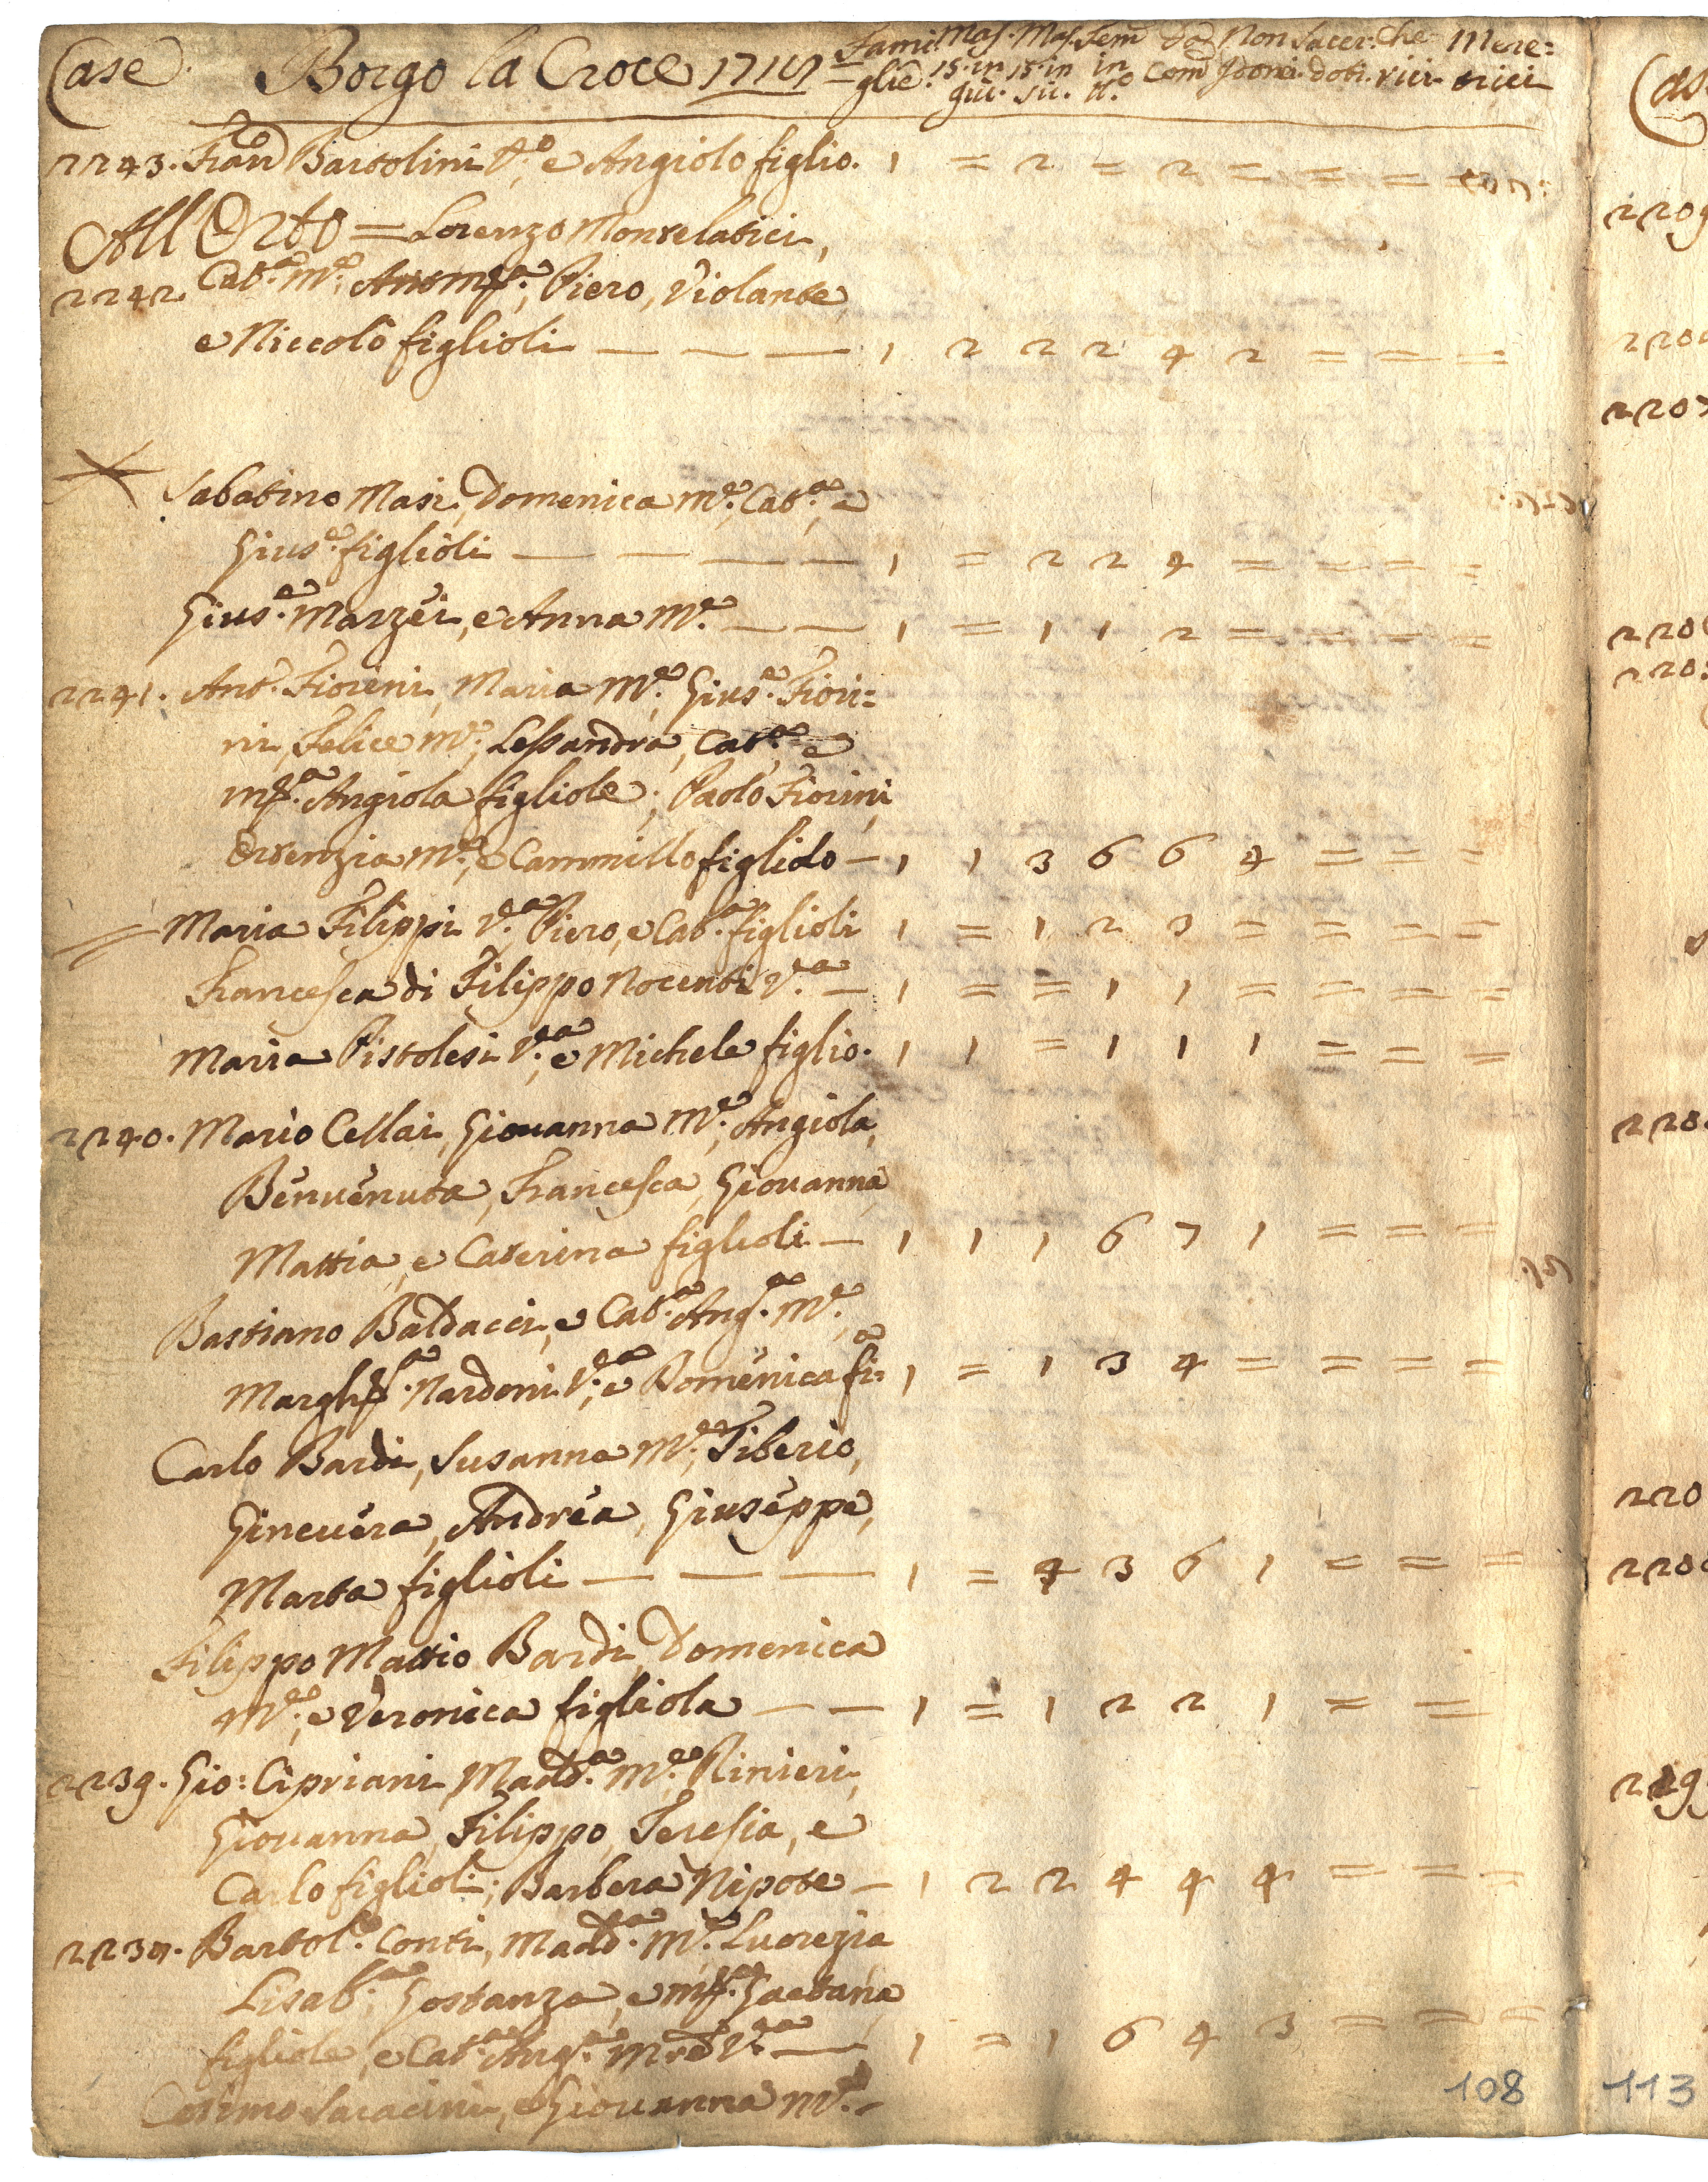 Case. Borgo la Croce 1717 Fami= Mas. Mas. Fem̃ da Non Sacer: Che= Mere=
glie. 15. in 15. in in Com̃ Idonei. doti. rici. trici
giù. sù. tt.o
2243. Fran.co Bartolini V.o e Angiolo figlio. 1 = 2 = 2 = = = =
All Orto = Lorenzo Montelatici,
2242. Cat.a M.e Ant.o M.a, Piero, Violante
e Niccolò figlioli — — — 1 2 2 2 4 2 = = =
Sabatino Masi, Domenica M.e, Cat.a, e
Gius.e figlioli — — — — 1 = 2 2 4 = = = =
Gius.e Marzèi, e Anna M.e — — 1 = 1 1 2 = = = =
2241. Ant.o Fiorini, Maria M.e, Gius.e Fiori=
ni, Felice M.e, Lessandra, Cat.a e
M.a Angiola figliole; Paolo Fiorini,
Ortenzia M.e, e Cammillo figliolo — 1 1 3 6 6 4 = = =
Maria Filippi V.a, Piero, e Cat.a figlioli 1 = 1 2 3 = = = =
Francesca di Filippo Nocenti V.a — 1 = = 1 1 = = = =
Maria Pistolesi V.a, e Michele figlio. 1 1 = 1 1 1 = = =
2240. Mario Cellai, Giouanna M.e, Angiola,
Benuenuta, Francesca, Giouanna,
Mattia, e Caterina figlioli — 1 1 1 6 7 1 = = =
Bastiano Baldacci, e Cat.a Ang.a M.e,
Margh.ta Nardoni V.a, e Domenica fi: 1 = 1 3 4 = = = =
Carlo Bardi, Susanna M.e, Tiberio,
Gineuera, Andrea, Giuseppe,
Marta figlioli — — — 1 = 4 3 6 1 = = =
Filippo Mattio Bardi, Domenica
M.e, e Veronica figliola — — 1 = 1 2 2 1 = =
2239. Gio: Cipriani, Madd.a M.e, Rinieri,
Giouanna, Filippo, Teresia, e
Carlo figlioli; Barbera Nipote — 1 2 2 4 4 4 = = =
Bartol.o Conti, Madd.a M.e, Lucrezia
Lisab.a, Gostanza, e M.a Gaetana
figliole, e Cat.a Ang.a M.re V.a — 1 = 1 6 4 3 = = =
Cosimo Saracini, e Giouanna M.e
108 113